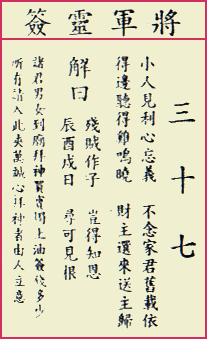 將軍靈簽
三十七
小人見利心忘義 不念家君舊載依
得邊聽得雞鳴曉 財主還來送主歸
解曰
殘賊作子 豈得知恩
辰酉戌日 尋可見恨
諸君男女到廟拜神買寶燭上油簽錢多少
所有請入此夾萬誠心拜神者由人立意